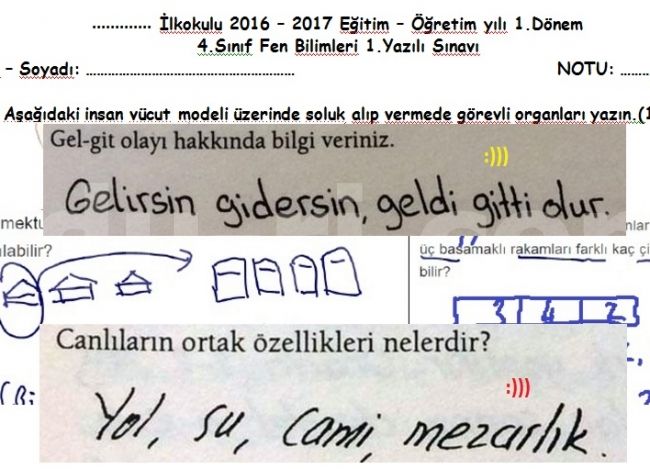 ............. İlkokulu 2016 – 2017 Eğitim – Öğretim yılı 1.Dönem
4.Sınıf Fen Bilimleri 1.Yazılı Sınavı
– Soyadı: ............................................................ NOTU: .........
Aşağıdaki insan vücut modeli üzerinde soluk alıp vermede görevli organları yazın.(1
Gel-git olayı hakkında bilgi veriniz.
:)))
Gelirsin gidersin, geldi gitti olur.
mektu
labilir?
üç basamaklı rakamları farklı kaç çi
bilir?
3 4 2
Canlıların ortak özellikleri nelerdir?
:)))
Yol, su, cami, mezarlık.